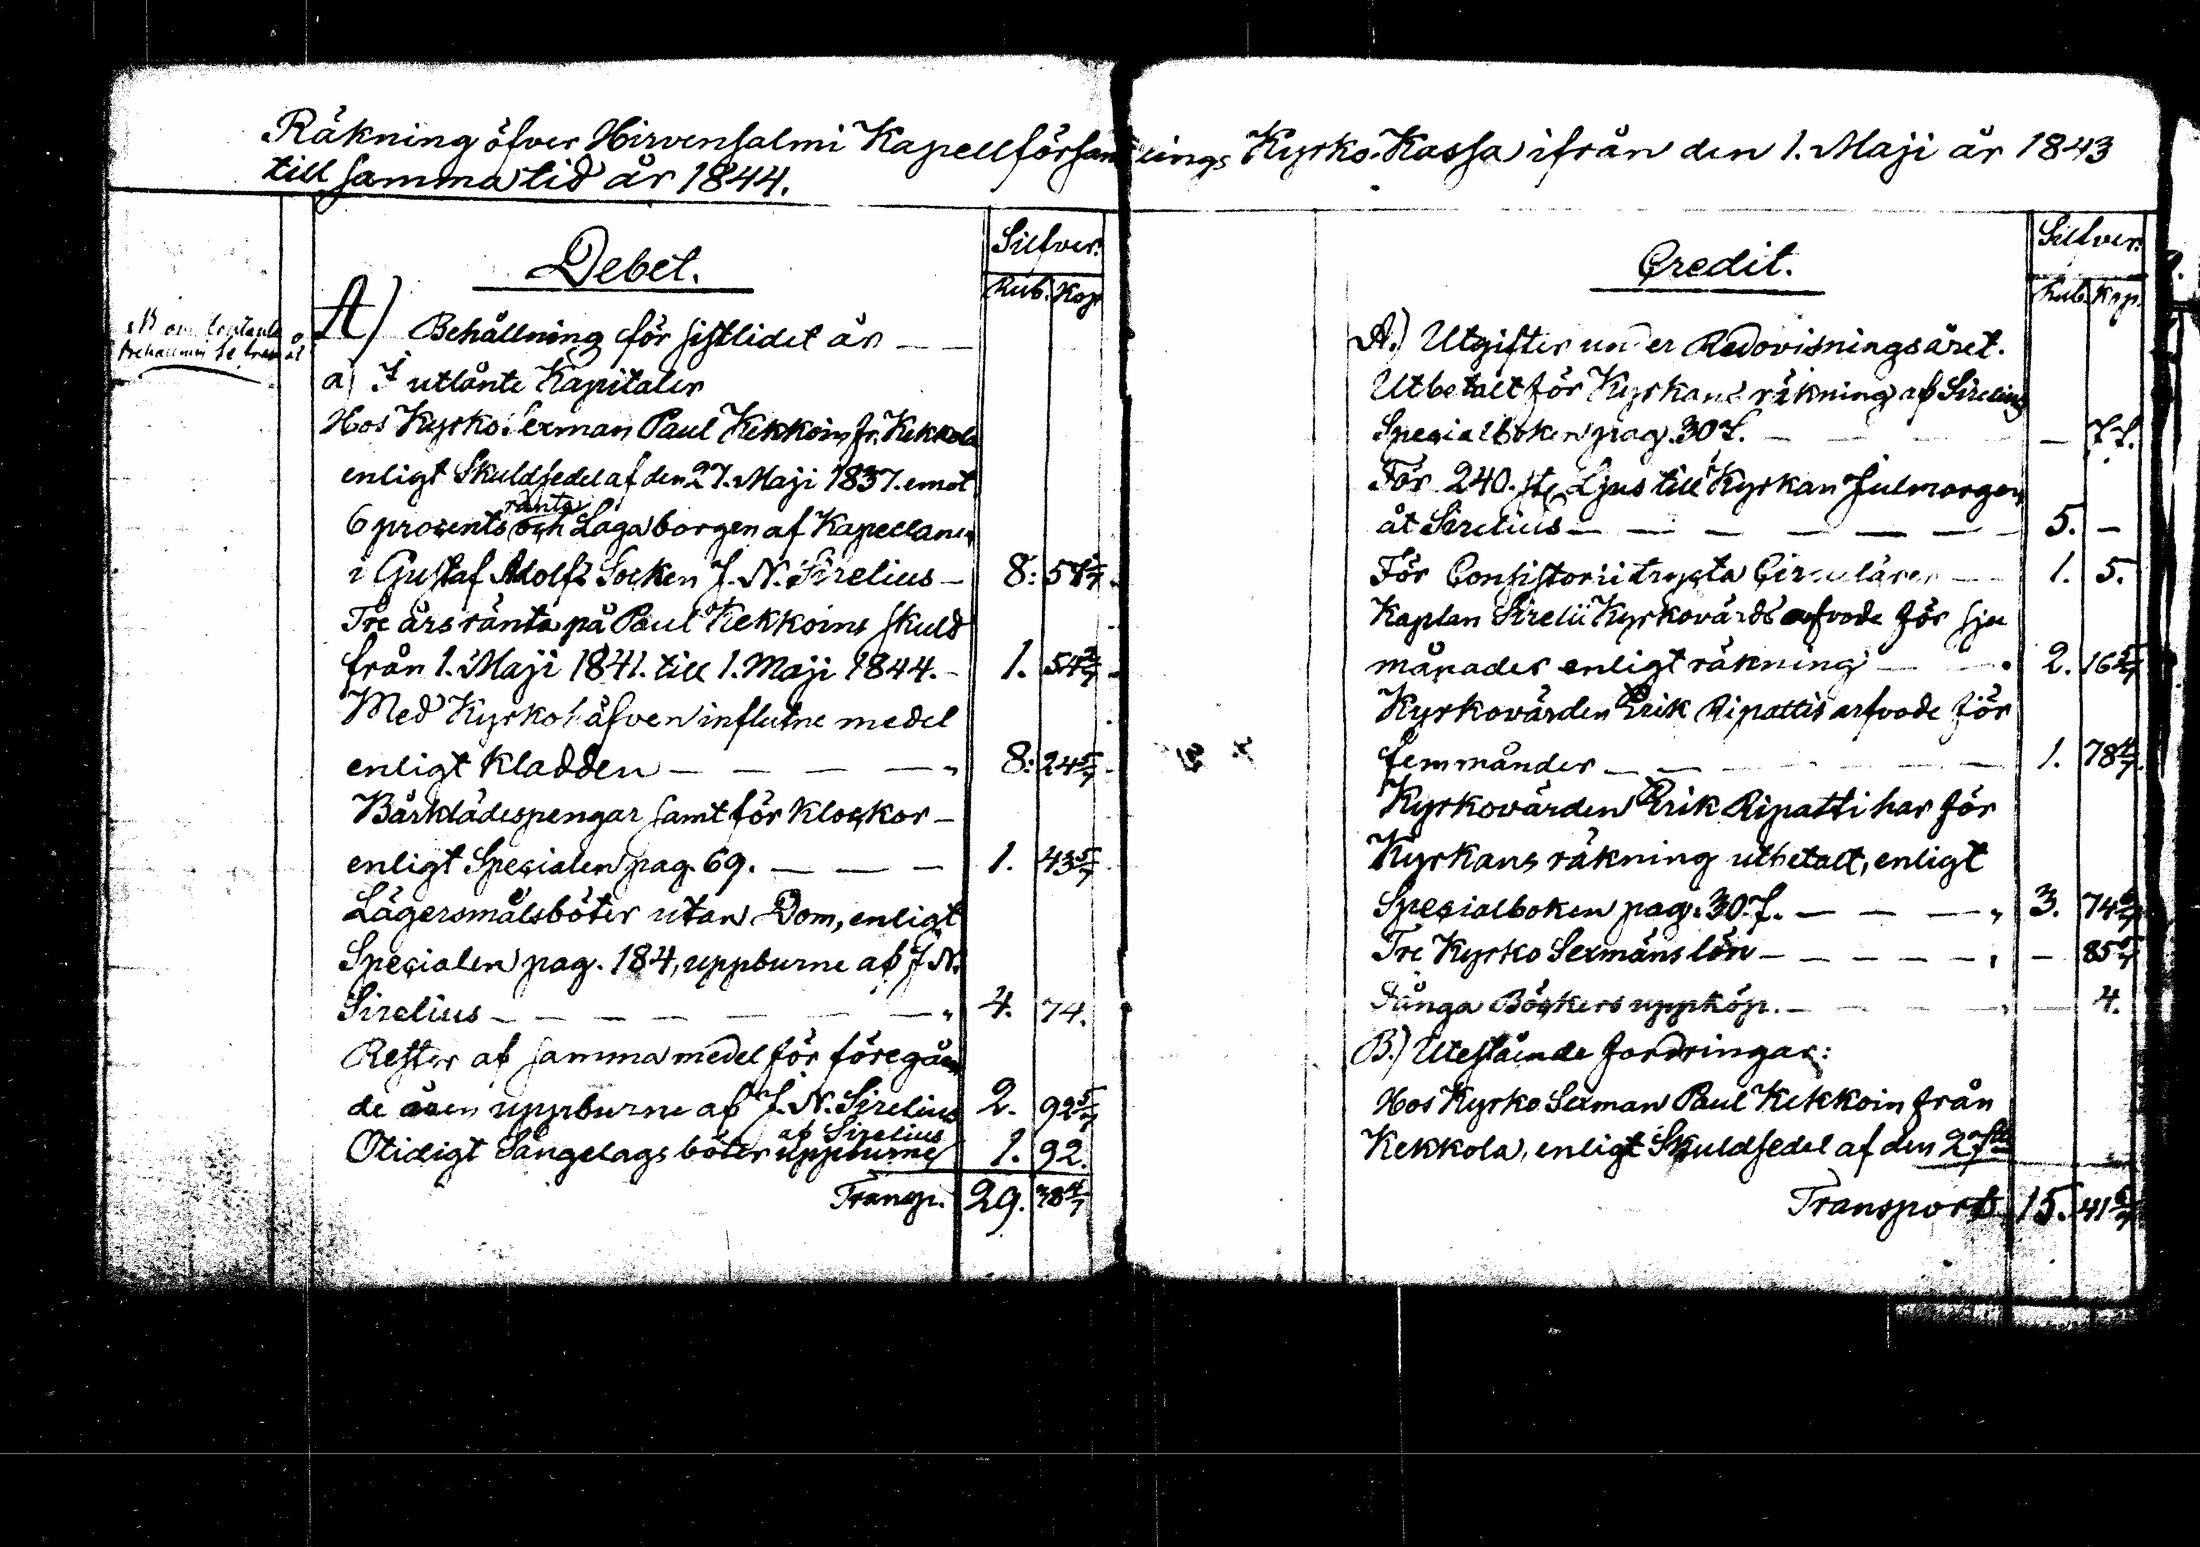 Räkning öfver Hirvensalmi Kapellförsamlings Kyrko-Kassa ifrån den 1. Maji år 1843
till samma tid år 1844.
Debet.
Silfver.
Rub. Kop.
A) Behållning för sistlidet år —
a) I utlånte Kapitaler
Hos Kyrko Sexman Paul Kekkoin fr. Kekkola
enligt Skuldsedel af den 27. Maji 1837. emot
ränta
6 procents och Laga borgen af Kapellanen
i Gustaf Adolfs Socken J. N. Sirelius — 8: 57 1/7
Tre års ränta på Paul Kekkoins skuld
från 1. Maji 1841. till 1. Maji 1844. - 1. 54 2/7
Med Kyrkohäfven influtne medel
enligt Kladden — — — — 8: 24 5/7
Bårklädespengar samt för klockor —
enligt Specialen pag. 69. — — — 1. 43 5/7
Lägersmålsböter utan Dom, enligt
Specialen pag. 184, uppburne af J. N.
Sirelius — — — — — — 4. 74.
Rester af samma medel för föregåen
de åren uppburne af J. N. Sirelius 2. 92 5/7
af Sirelius
Otidigt Sängelags böter uppburne 1. 92.
Transp. 29. 38 4/7
Credit.
Silfver.
Rub. Kop.
A.) Utgifter under Redovisningsåret.
Utbetalt för Kyrkans räkning af Sirelius
Specialboken pag. 307. — — — 77.
För 240. st. Ljus till Kyrkan Julmorgon
åt Sirelius — — — — — — 5. —
För Consistorii tryckta Circulärer — 1. 5.
Kaplan Sirelii Kyrkovärds arfvode för sju
månader enligt räkning — — 2. 16 5/7
Kyrkovärden Erik Ripattis arfvode för
fem månder — — — — — 1. 78 4/7
Kyrkovärden Erik Ripatti har för
Kyrkans räkning utbetalt, enligt
Specialboken pag. 307. — — — 3. 74 6/7
Tre Kyrko Sexmäns lön — — — — — — 85 5/7
Böckers uppköp. — — — — 4.
B.) Utestående fordringar:
Hos Kyrko Sexman Paul Kekkoin från
Kekkola, enligt Skuldsedel af den 27de
Transport 15. 41 6/7